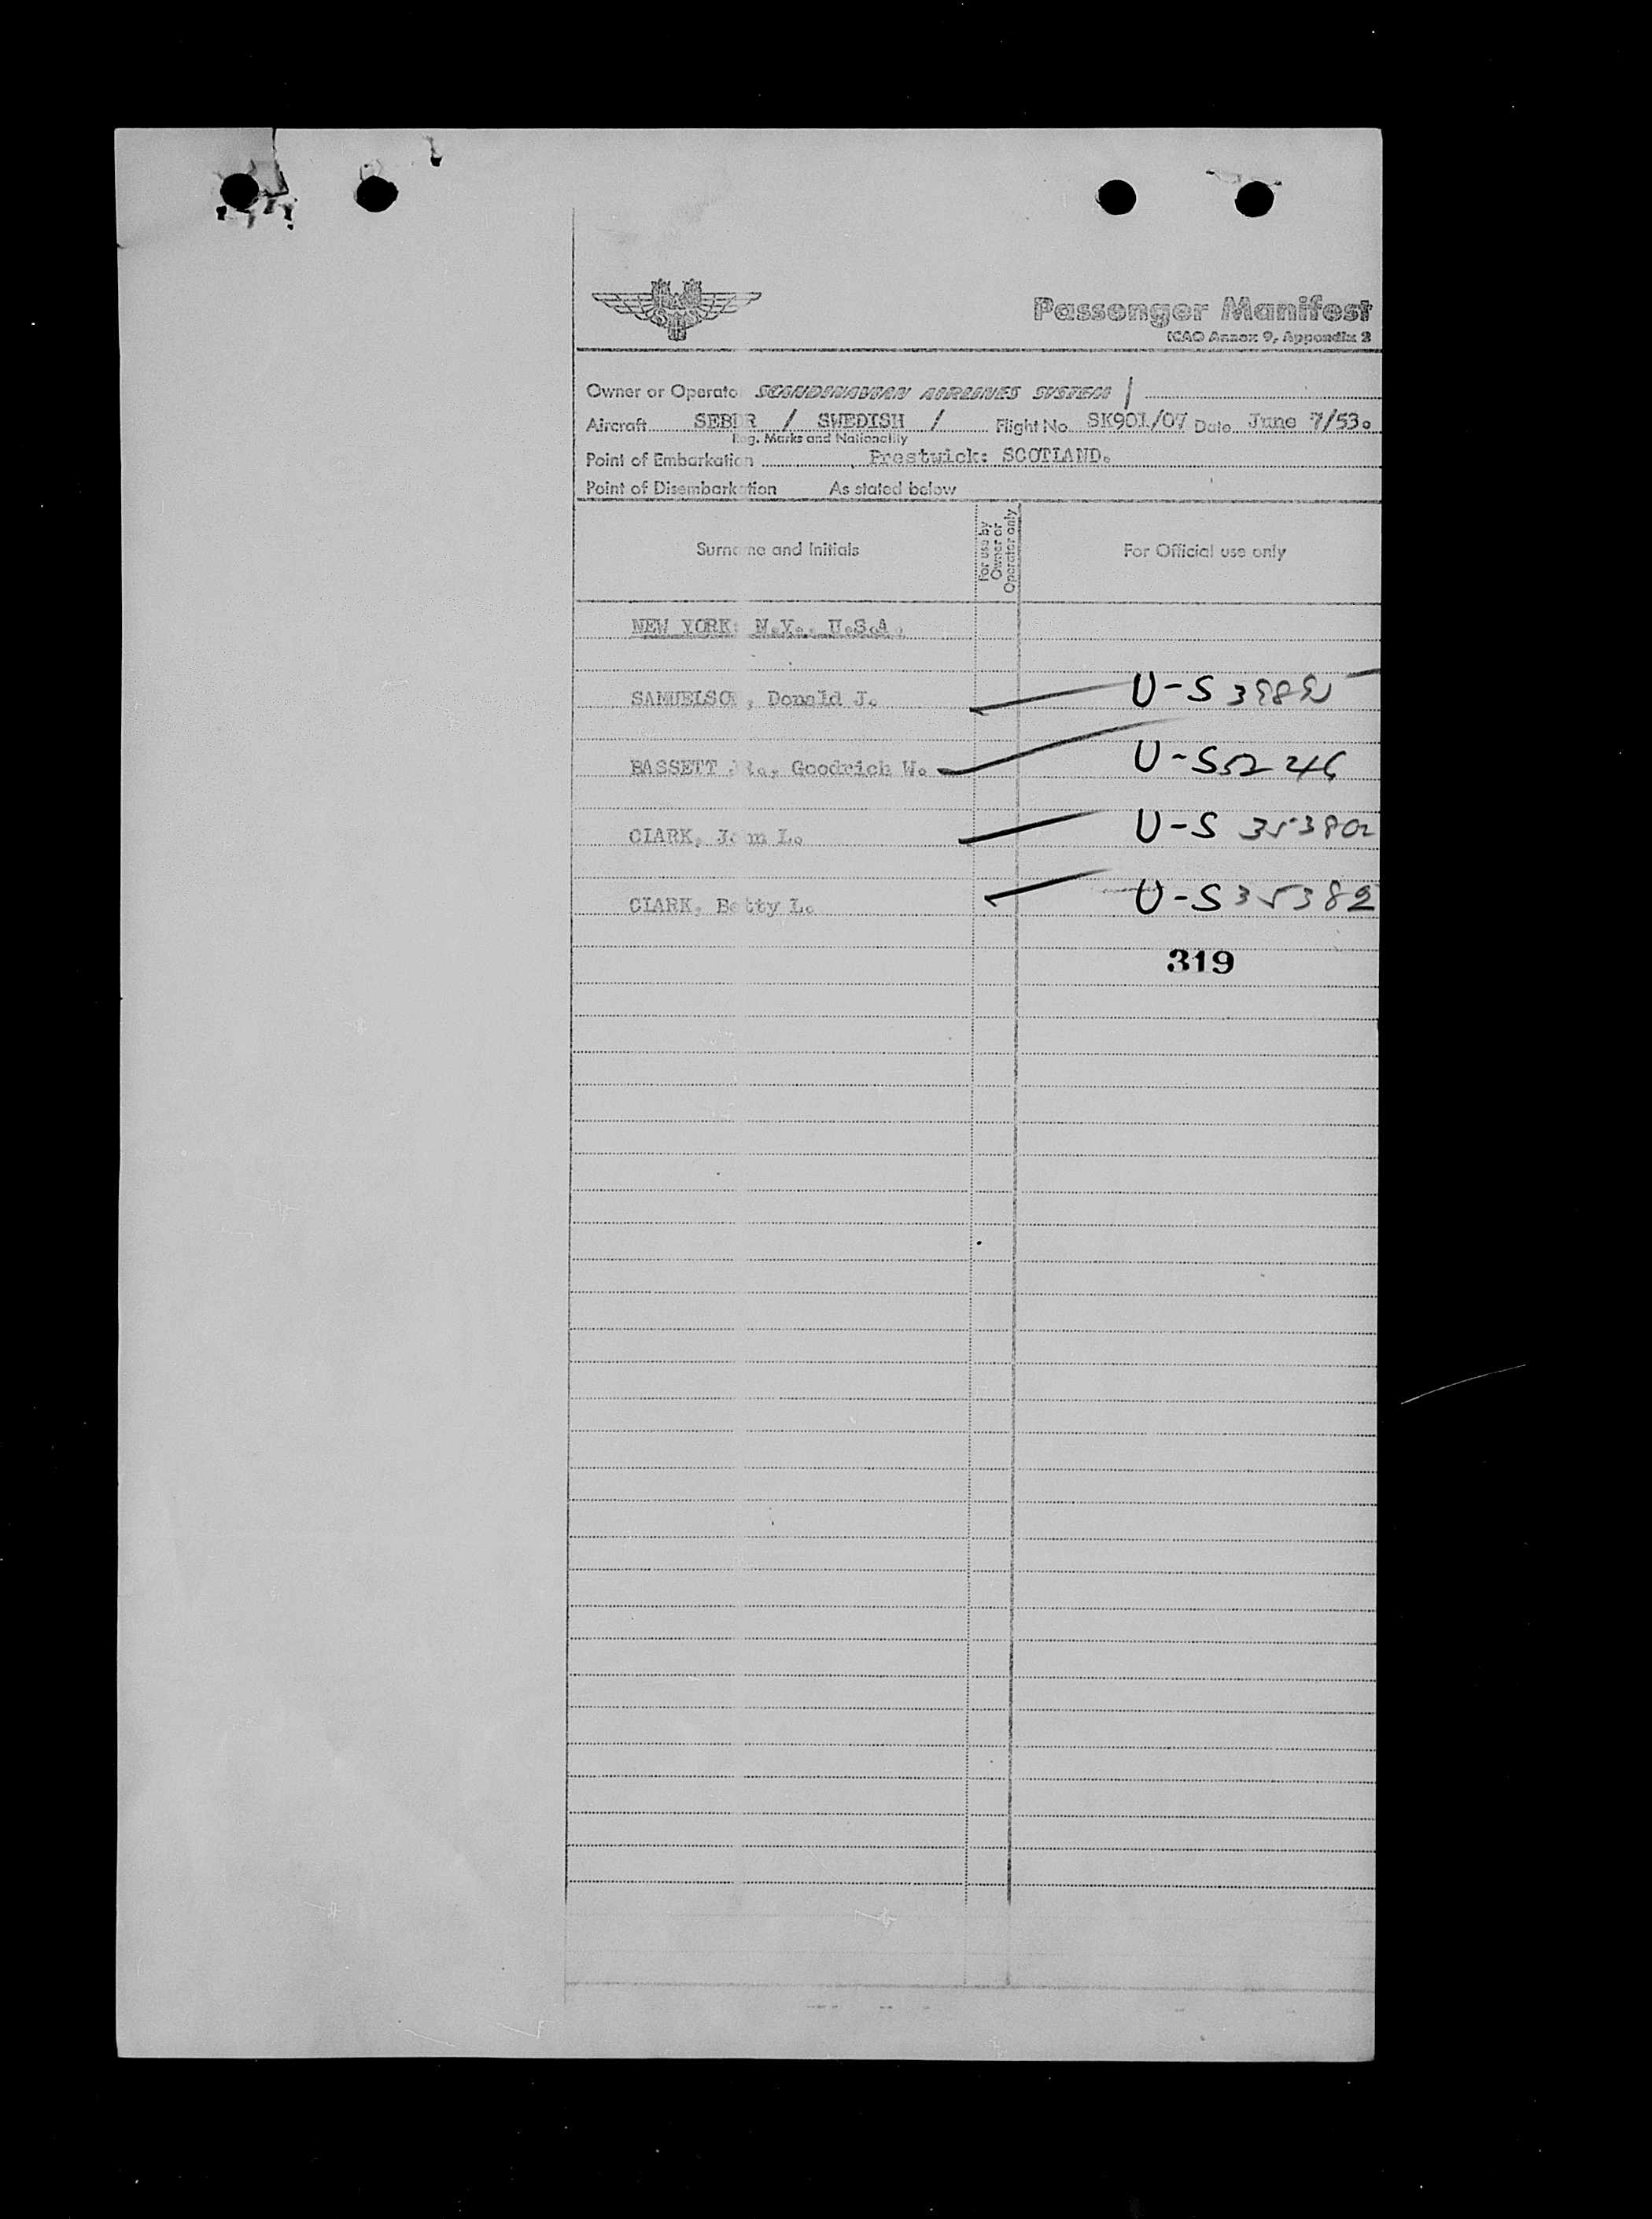 SAS
Passenger Manifest
ICAO Annex 9, Appendix 2
Owner or Operato SCANDINAVIAN AIRLINES SYSTEM /
Aircraft SEBDR / SWEDISH / Flight No. SK901/07 Date June 7/53.
Reg. Marks and Nationality
Point of Embarkation Prestwick: SCOTLAND.
Point of Disembarkation As stated below
Surname and Initials
For use by Owner or Operator only
For Official use only
NEW YORK: N.Y., U.S.A.
SAMUELSON, Donald J. U-S
BASSETT JR., Goodrich W. U-S 52246
CLARK, John L. U-S 35380
CLARK, Betty L. U-S 35382
319